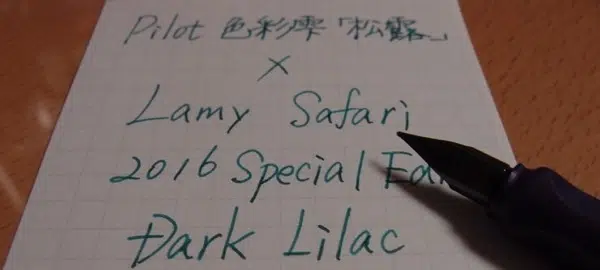 Pilot 色彩雫「松露」
×
Lamy Safari
2016 Special
Dark Lilac